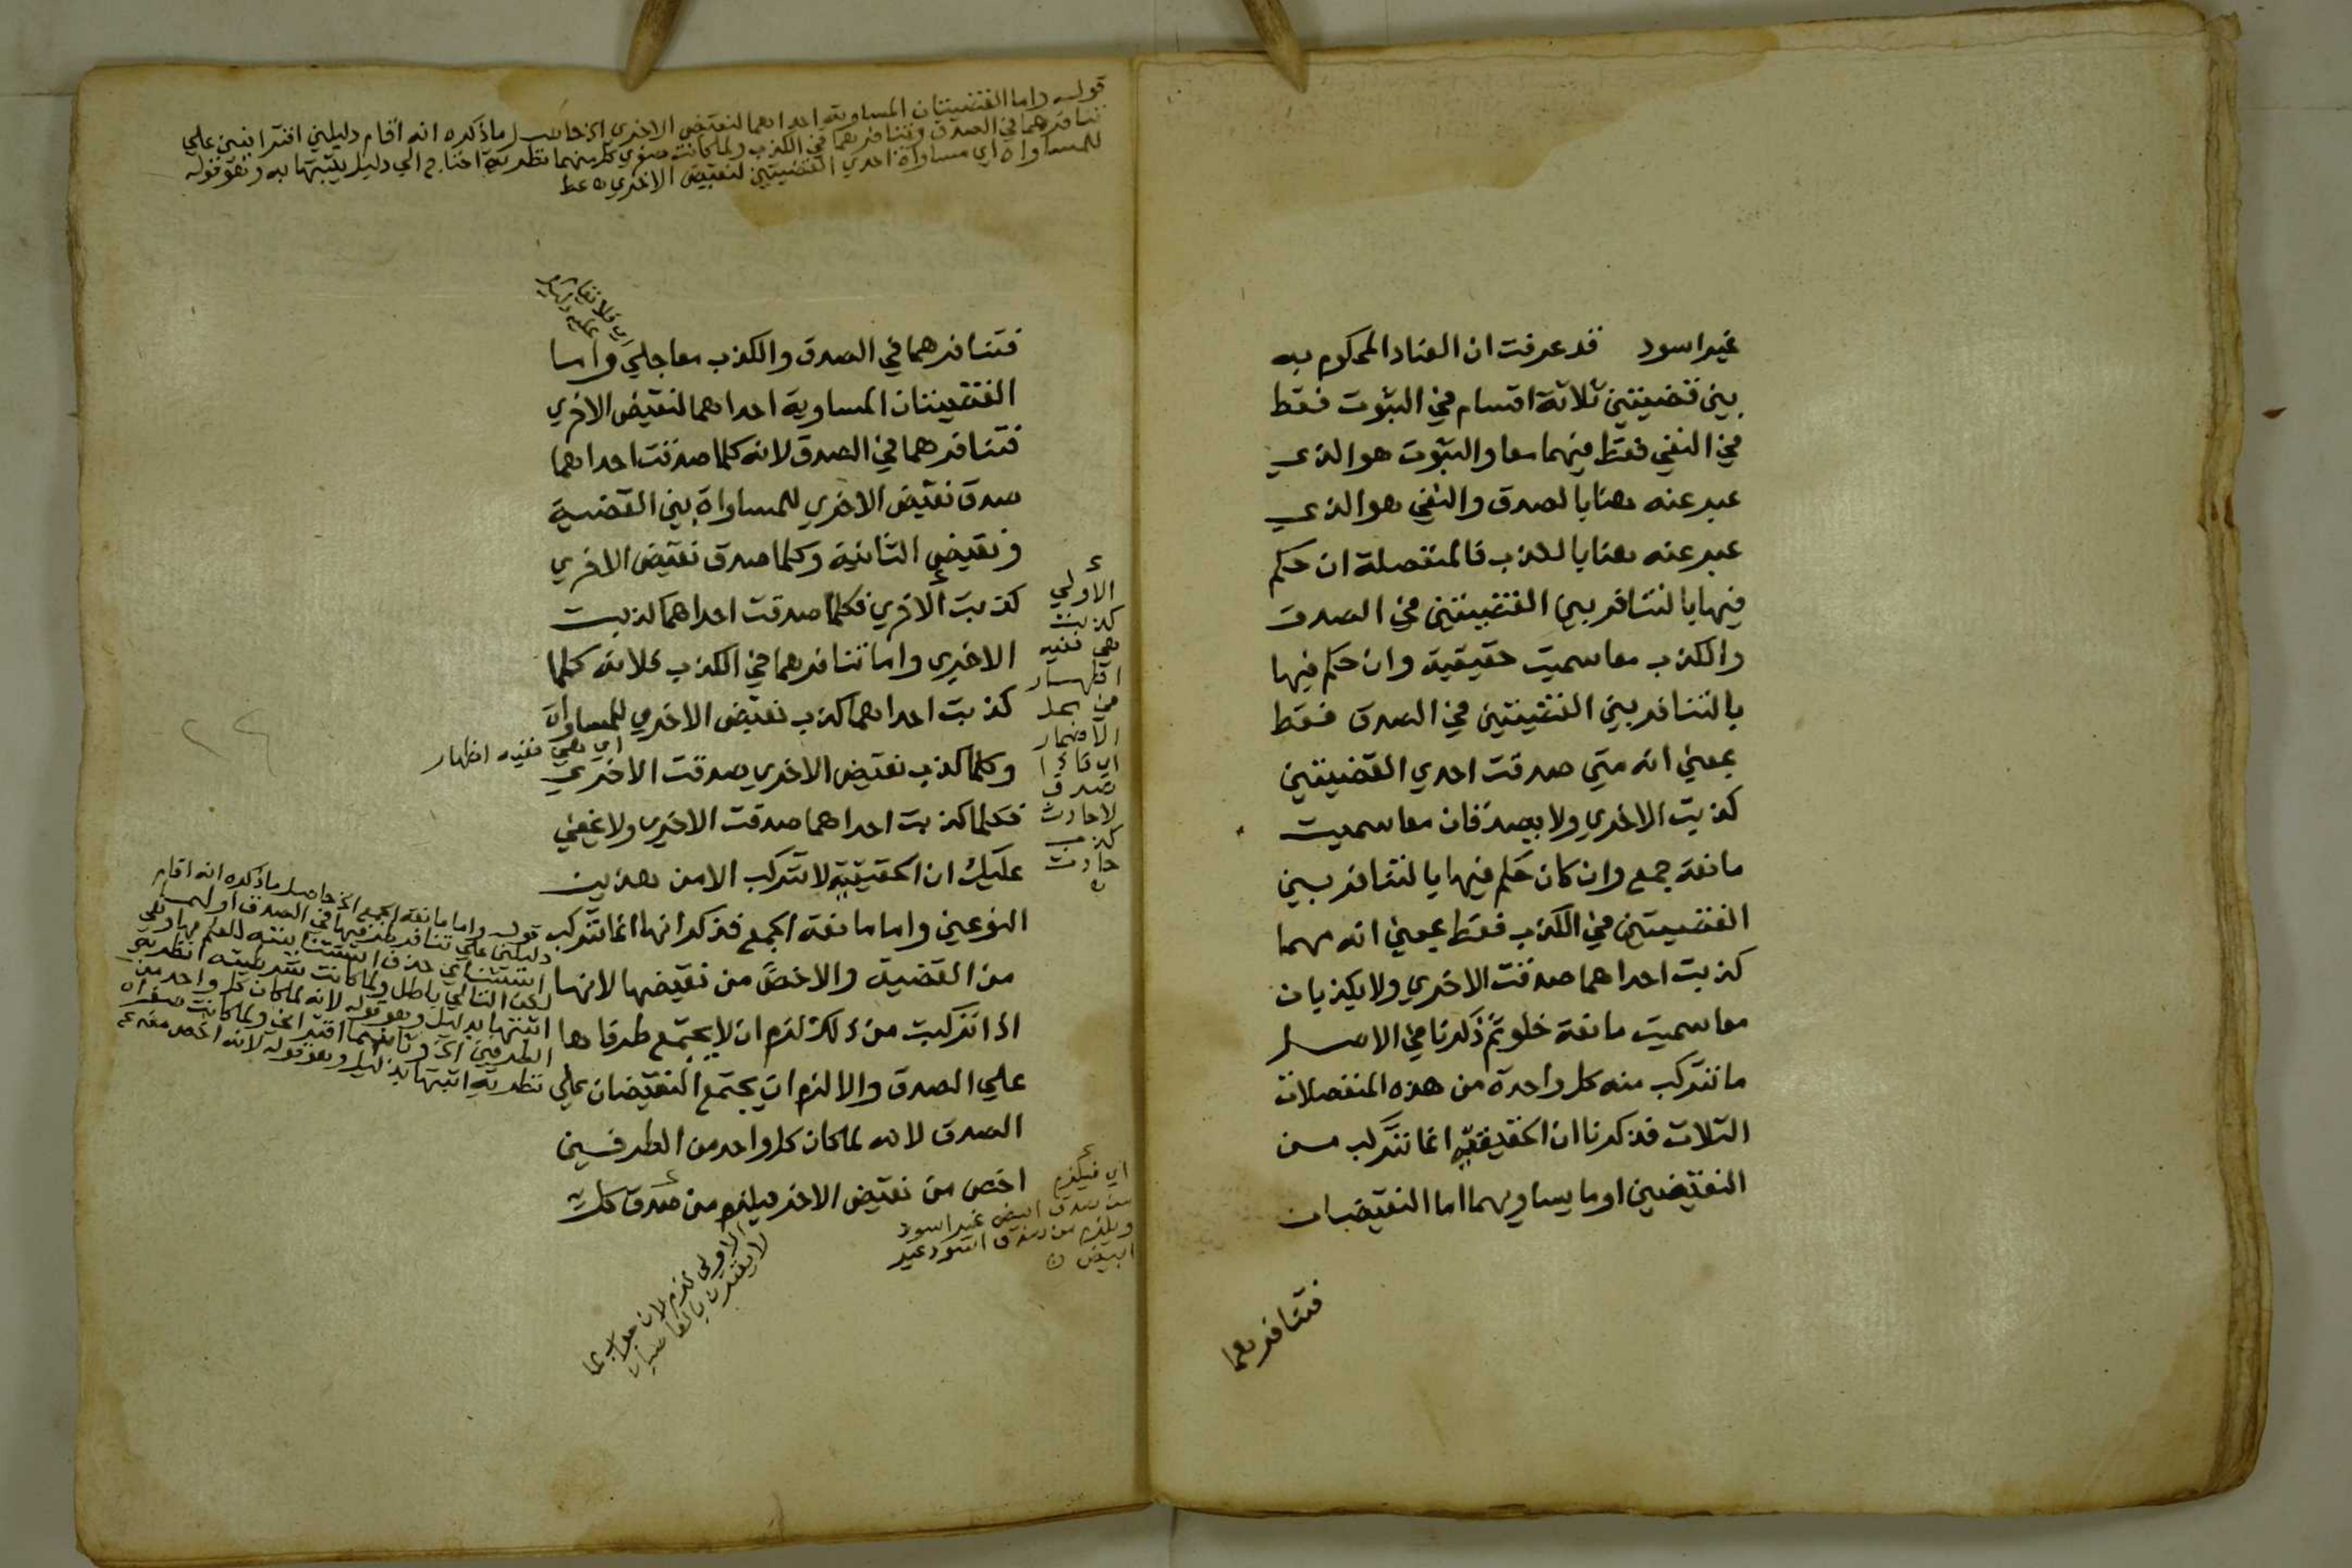 غير اسود قد عرفت ان العناد المحكوم به
بين قضيتين ثلاثة اقسام في الثبوت فقط
في النفي فقط فيهما معا والثبوت هو الذي
عبر عنه هنا بالصدق والنفي هو الذي
عبر عنه هنا بالكذب فالمنفصلة ان حكم
فيها بالتنافر بين القضيتين في الصدق
والكذب معا سميت حقيقية وان حكم فيها
بالتنافر بين القضيتين في الصدق فقط
بمعني انه متي صدقت احدي القضيتين
كذبت الاخري ولا يصدقان معا سميت
مانعة جمع وان كان حكم فيها بالتنافر بين
القضيتين في الكذب فقط بمعني انه مهما
كذبت احداهما صدقت الاخري ولا يكذبان
معا سميت مانعة خلو ثم ذكرنا في الاصل
ما تتركب منه كل واحدة من هذه المنفصلات
الثلاث فذكرنا ان الحقيقية انما تتركب من
النقيضين او ما يساويهما اما النقيضان
فتنافرهما
قوله واما القضيتان المساوية احداهما لنقيض الاخري الخ حاصل ما ذكره انه اقام دليلين اقترانيين علي
تنافرهما في الصدق وتنافرهما في الكذب ولما كانت صغري كل منهما نظرية احتاج الي دليل يثبتها به وهو قوله
للمساواة اي مساواة احدي القضيتين لنقيض الاخري
اي فلا يقام
عليه دليل
فتنافرهما في الصدق والكذب معا جلي واما
القضيتان المساوية احداهما لنقيض الاخري
فتنافرهما في الصدق لانه كلما صدقت احداهما
صدق نقيض الاخري للمساواة بين القضية
ونقيض الثانية وكلما صدق نقيض الاخري
كذبت الاخري فكلما صدقت احداهما كذبت
الاخري واما تنافرهما في الكذب فلانه كلما
كذبت احداهما كذب نقيض الاخري للمساواة
وكلما كذب نقيض الاخري صدقت الاخري
فكلما كذبت احداهما صدقت الاخري ولا يخفي
عليك ان الحقيقية لا تتركب الا من هذين
النوعين واما مانعة الجمع فذكر انها انما تتركب
من القضية والاخص من نقيضها لانها
اذا تركبت من ذلك لزم ان لا يجتمع طرفاها
علي الصدق والا لزم ان يجتمع النقيضان علي
الصدق لانه لما كان كل واحد من الطرفين
اخص من نقيض الاخر فيلزم من صدق كل
الاولي
كذبت
هي ففيه
اظهار
في محل
الاضمار
اي فاذا
صدق
لا حادث
كذب
حادث
اي هي ففيه اظهار
قوله واما مانعة الجمع الخ حاصل ما ذكره انه اقام
دليلين علي تنافر طرفيها في الصدق اولهما
لكن التالي باطل ولما كانت شرطيته نظرية
اثبتها بدليل وهو قوله لانه لما كان كل واحد من
الطرفين الخ وثانيهما اقتراني ولما كانت صغراه
نظرية اثبتها بدليل وهو قوله لانه اخص
اي فيلزم
من صدق ابيض غير اسود
ويلزم من صدق اسود غير
ابيض
الاولي لزم لان جواب لما
لا يقترن بالفا